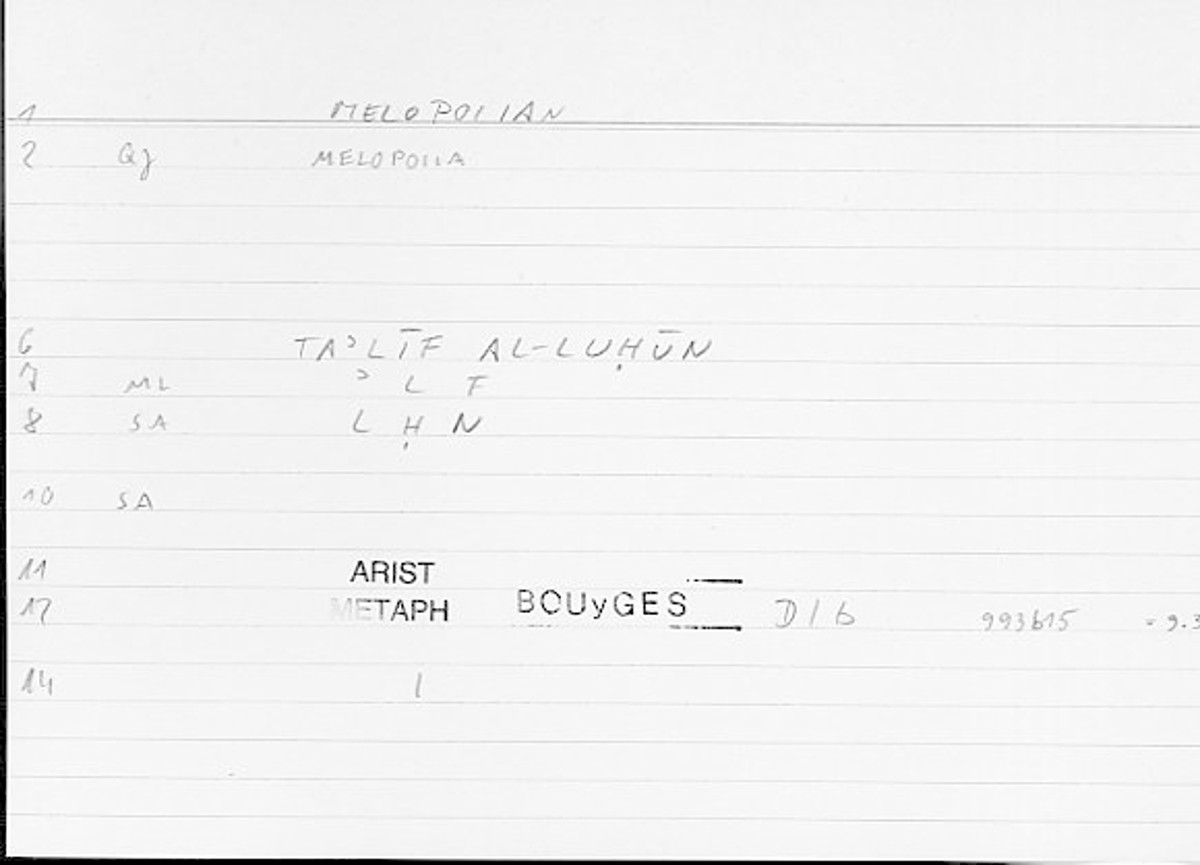 1 MELOPOIIAN
2 Qj MELOPOIIA
6 TAʾLĪF AL-LUḤŪN
7 ML ʾ L F
8 SA L Ḥ N
10 SA
11 ARIST
12 METAPH BOUyGES D/b 993b15 = 9.3
14 1